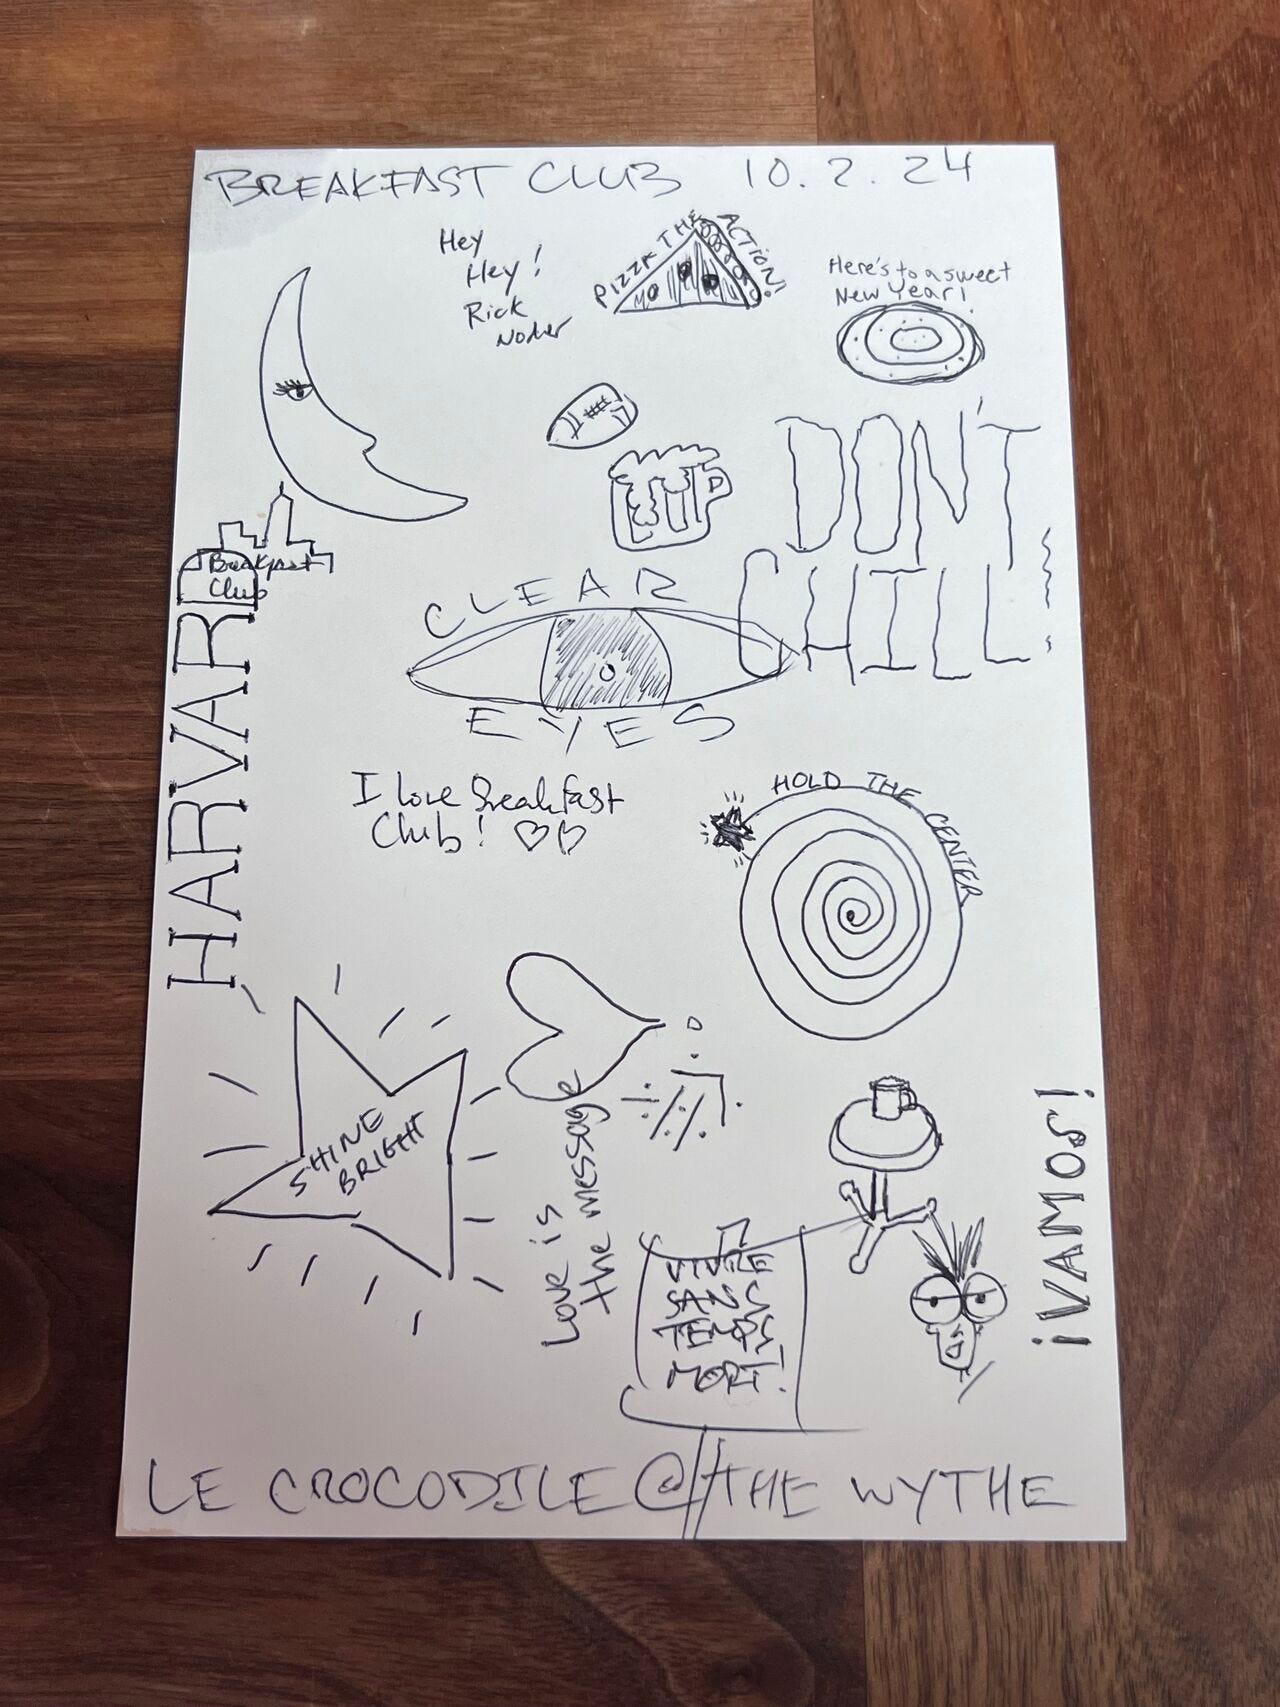 BREAKFAST CLUB 10.2.24
Hey
Hey!
Rick
PIZZA THE ACTION!
Here's to a sweet
New Year!
DON'T
CHILL!
Breakfast
Club
HARVARD
CLEAR
EYES
I love Breakfast
Club!
HOLD THE CENTER
SHINE
BRIGHT
Love is
the message
¡VAMOS!
VIVRE
SANS
TEMPS
MORT!
LE CROCODILE @ THE WYTHE